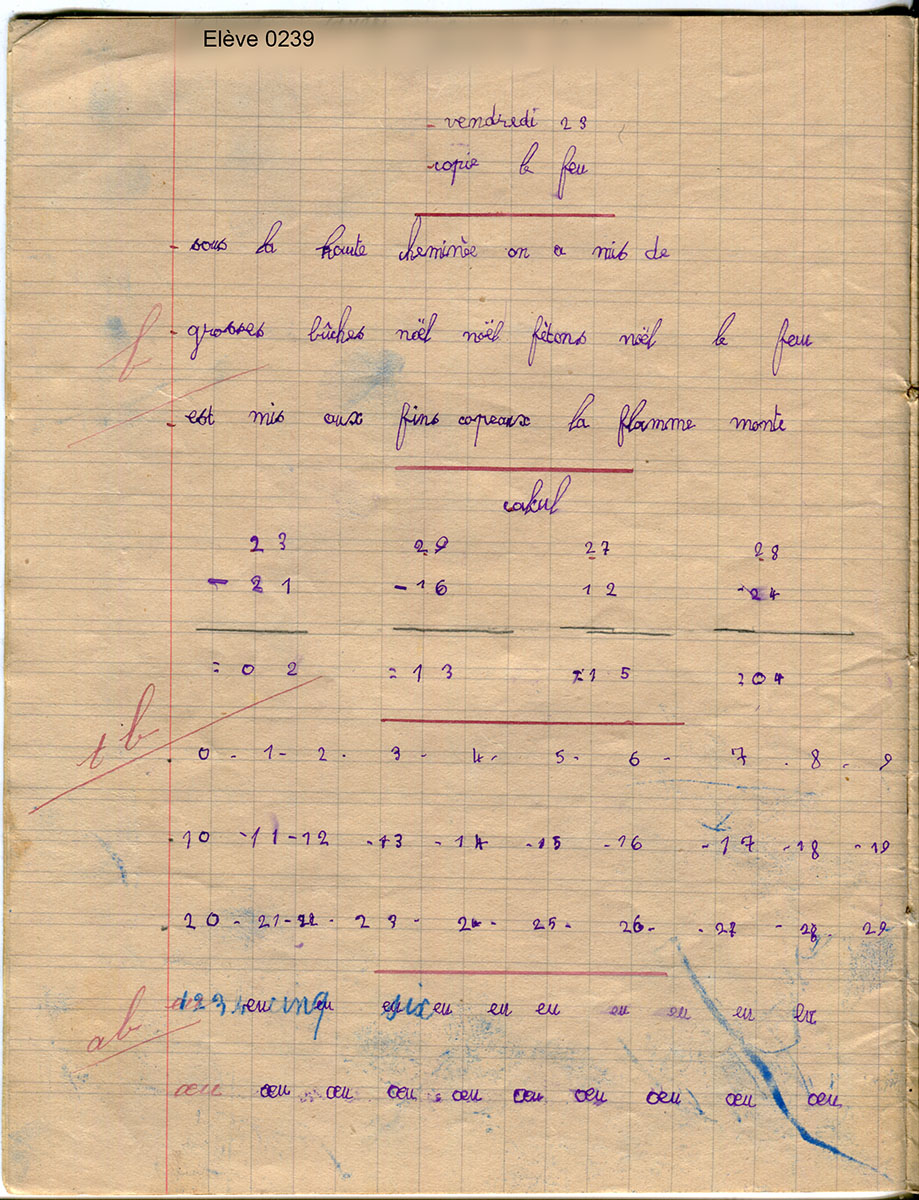 Elève 0239
- vendredi 23
copie le feu
- sous la haute cheminée on a mis de
b - grosses bûches nöël nöël fêtons nöël le feu
- est mis aux fins copeaux la flamme monte
calcul
23 29 27 28
- 21 - 16 12 - 24
= 02 = 13 = 15 = 04
tb
0 - 1 - 2 - 3 - 4 - 5 - 6 - 7 - 8 - 9
- 10 - 11 - 12 - 13 - 14 - 15 - 16 - 17 - 18 - 19
- 20 - 21 - 22 - 23 - 24 - 25 - 26 - 27 - 28 - 29
ab 123 4 eu cinq eu eu six eu eu eu eu eu eu
œu œu œu œu œu œu œu œu œu œu